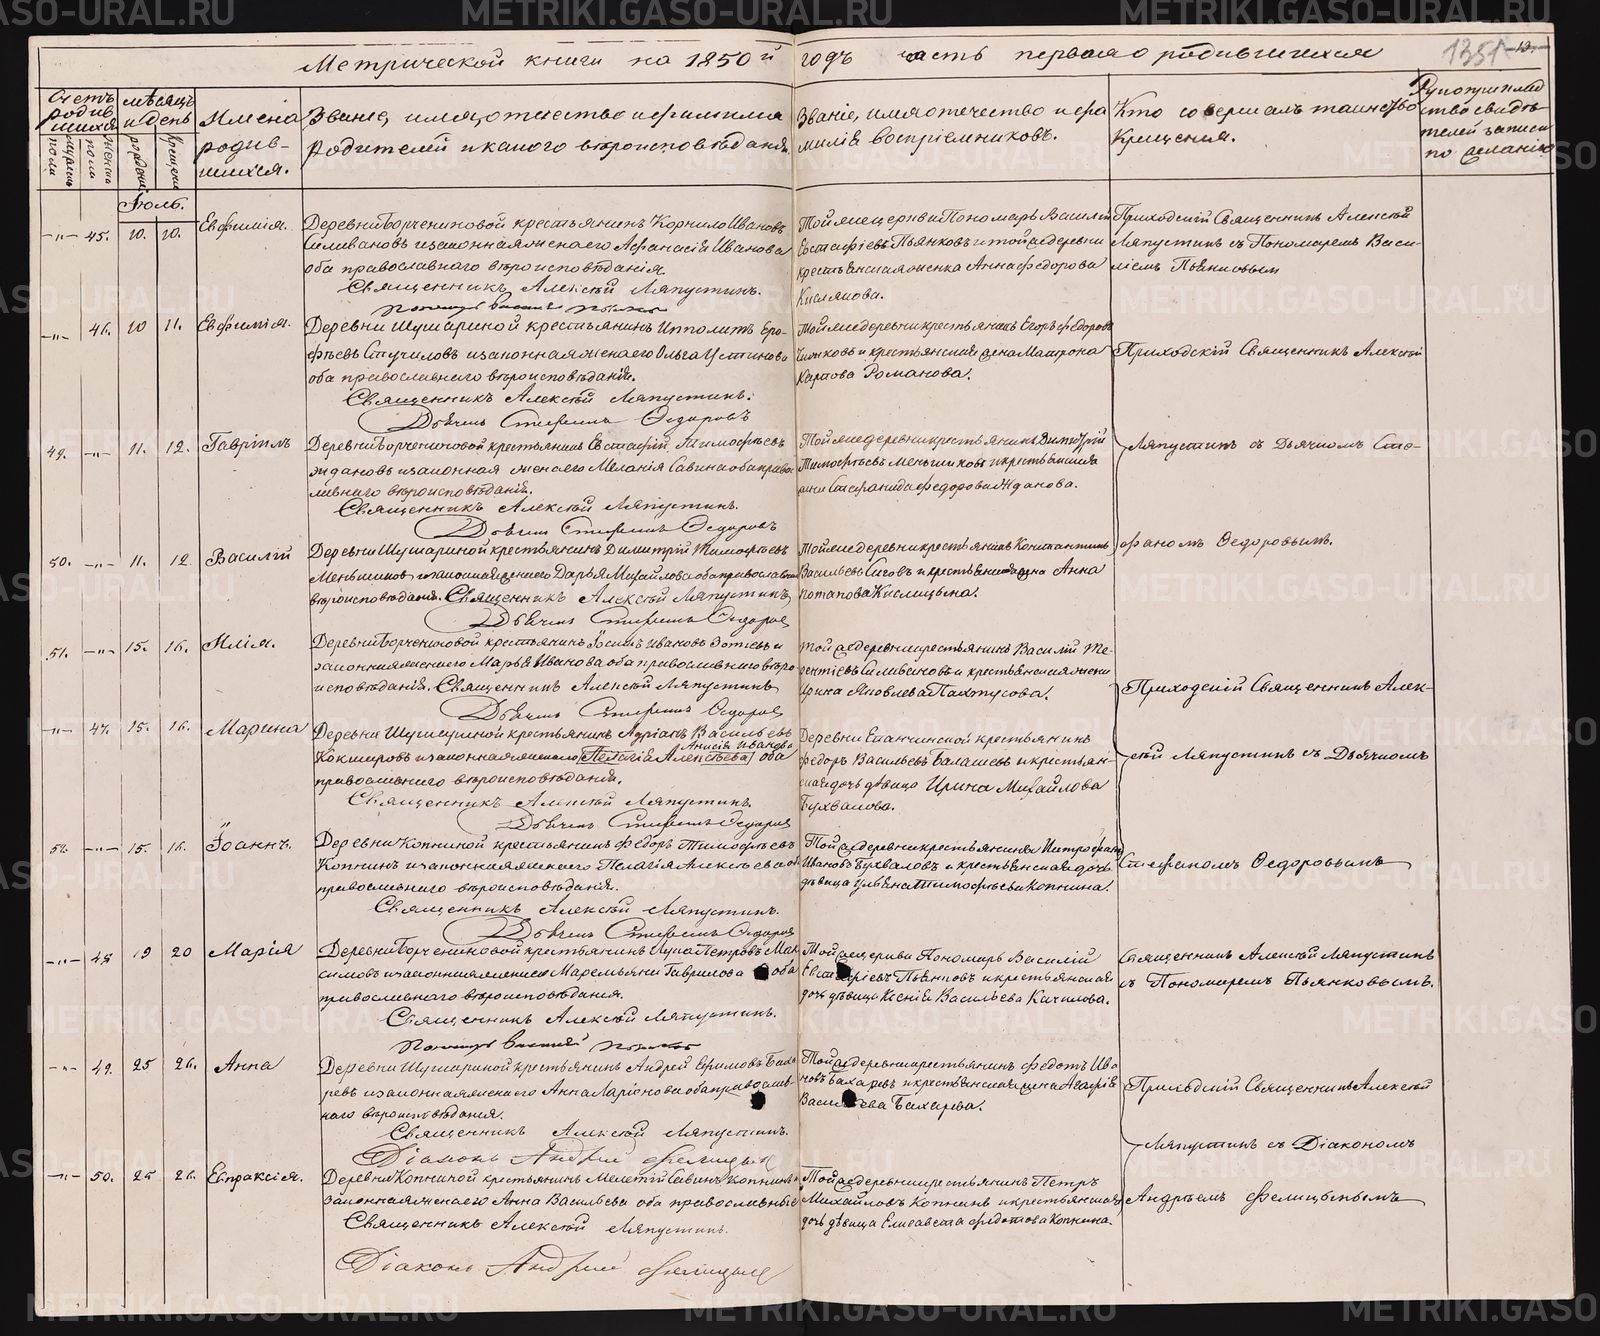 METRIKI.GASO-URAL.RU
Метрической книги на 1850й годъ часть первая о родившихся
1351
Счетъ родившихся
мужеска пола
женска пола
мѣсяцъ и день
рожденія
крещенія
Имена родившихся.
Званіе, имя, отчество и фамилия
родителей и какого вѣроисповѣданія.
Званіе, имя отчество и фамилія воспріемниковъ.
Кто совершалъ таинство
Крещения.
Рукоприкладство свидѣтелей записи по желанію
Іюль.
-"- 45. 10. 10. Евфимія.
Деревни Борчениновой крестьянинъ Корнило Ивановъ
Селивановъ и законная жена его Афанасія Иванова
оба православнаго вѣроисповѣданія.
Священникъ Алексѣй Ляпустинъ.
Той же церкви Пономарь Василій
Евстафіевъ Пьянковъ и той же деревни
крестьянская женка Анна Федорова
Кислякова.
Приходскій Священникъ Алексѣй
Ляпустинъ съ Пономаремъ Васи-
ліемъ Пьянковым
-"- 46. 10 11. Евфимія.
Деревни Шушариной крестьянинъ Ипполитъ Еро-
фѣевъ Стучиловъ и законная жена его Ольга Устинова
оба православнаго вѣроисповѣданія.
Священникъ Алексѣй Ляпустинъ.
Дьячекъ Стефанъ Ѳедоровъ
Той же деревни крестьянинъ Егоръ Федоровъ
и крестьянская жена Матрона
Карпова Романова.
Приходскій Священникъ Алексѣй
49. -"- 11. 12. Гавріилъ
Деревни Борчениновой крестьянинъ Евстафій Тимофѣевъ
Ждановъ и законная жена его Меланія Савина оба право-
славнаго вѣроисповѣданія.
Священникъ Алексѣй Ляпустинъ.
Дьячекъ Стефанъ Ѳедоровъ
Той же деревни крестьянинъ Димитрій
Тимофѣевъ Меньшиковъ и крестьянская
жена Стефанида Федорова Жданова.
Ляпустинъ съ Дьячкомъ Сте-
50. -"- 11. 12. Василій
Деревни Шушариной крестьянинъ Димитрій Тимофѣевъ
Меньшиковъ и законная жена его Дарья Михайлова оба православнаго
вѣроисповѣданія. Священникъ Алексѣй Ляпустинъ,
Дьячекъ Стефанъ Ѳедоров
Той же деревни крестьянинъ Константинъ
Васильевъ Сысовъ и крестьянская жена Анна
Потапова Кислицына.
фаномъ Ѳедоровымъ.
51. -"- 15. 16. Илія.
Деревни Борчениновой крестьянинъ Іосифъ Ивановъ Зотеевъ и
законная жена его Марья Иванова оба православнаго вѣро-
исповѣданія. Священникъ Алексѣй Ляпустинъ
Дьячекъ Стефанъ Ѳедоров
Той же деревни крестьянинъ Василій Те-
рентіевъ Селивановъ и крестьянская жена
Ирина Яковлева Пахтусова.
Приходскій Священникъ Алек-
-"- 47. 15. 16. Марина
Деревни Шушариной крестьянинъ Адріанъ Васильевъ
Анисія Иванова
Кокшаровъ и законная жена его Пелагія Алексѣева оба
православнаго вѣроисповѣданія.
Священникъ Алексѣй Ляпустинъ.
Дьячекъ Стефанъ Ѳедоров
Деревни Епанчинской крестьянинъ
Федоръ Васильевъ Балашевъ и крестьян-
ская дочь дѣвица Ирина Михайлова
Бухвалова.
сѣй Ляпустинъ съ Дьячкомъ
52. -"- 15. 16. Іоаннъ.
Деревни Копниной крестьянинъ Федоръ Тимофѣевъ
Копнинъ и законная жена его Пелагія Алексѣева оба
православнаго вѣроисповѣданія.
Священникъ Алексѣй Ляпустинъ.
Дьячекъ Стефанъ Ѳедоров
Той же деревни крестьянинъ Митрофанъ
Ивановъ Бухваловъ и крестьянская дочь
дѣвица Ульяна Тимофѣева Копнина.
Стефаномъ Ѳедоровымъ
-"- 48. 19 20 Марія
Деревни Борчениновой крестьянинъ Лука Петровъ Мак-
симовъ и законная жена его Маремьяна Гаврилова оба
православнаго вѣроисповѣданія.
Священникъ Алексѣй Ляпустинъ.
Пономарь Василій Пьянков
Той же церкви Пономарь Василій
Евстафіевъ Пьянковъ и крестьянская
дочь дѣвица Ксенія Васильева Качалова.
Священникъ Алексѣй Ляпустинъ
съ Пономаремъ Пьянковымъ.
-"- 49. 25 26. Анна
Деревни Шушариной крестьянинъ Андрей Ефимовъ Баха-
ревъ и законная жена его Анна Ларіонова оба православ-
наго вѣроисповѣданія.
Священникъ Алексѣй Ляпустинъ.
Діаконъ Андрей Фелицынъ
Той же деревни крестьянинъ Федотъ Ива-
новъ Бахаревъ и крестьянская жена Агафія
Васильева Бахарева.
Приходскій Священникъ Алексѣй
Ляпустинъ съ Діакономъ
-"- 50. 25 26. Евпраксія.
Деревни Копниной крестьянинъ Мелетій Савинъ Копнинъ и
законная жена его Анна Васильева оба православные
Священникъ Алексѣй Ляпустинъ.
Діаконъ Андрей Фелицынъ
Той же деревни крестьянинъ Петръ
Михайловъ Копнинъ и крестьянская
дочь дѣвица Елисавета Федотова Копнина.
Андреемъ Фелицынымъ